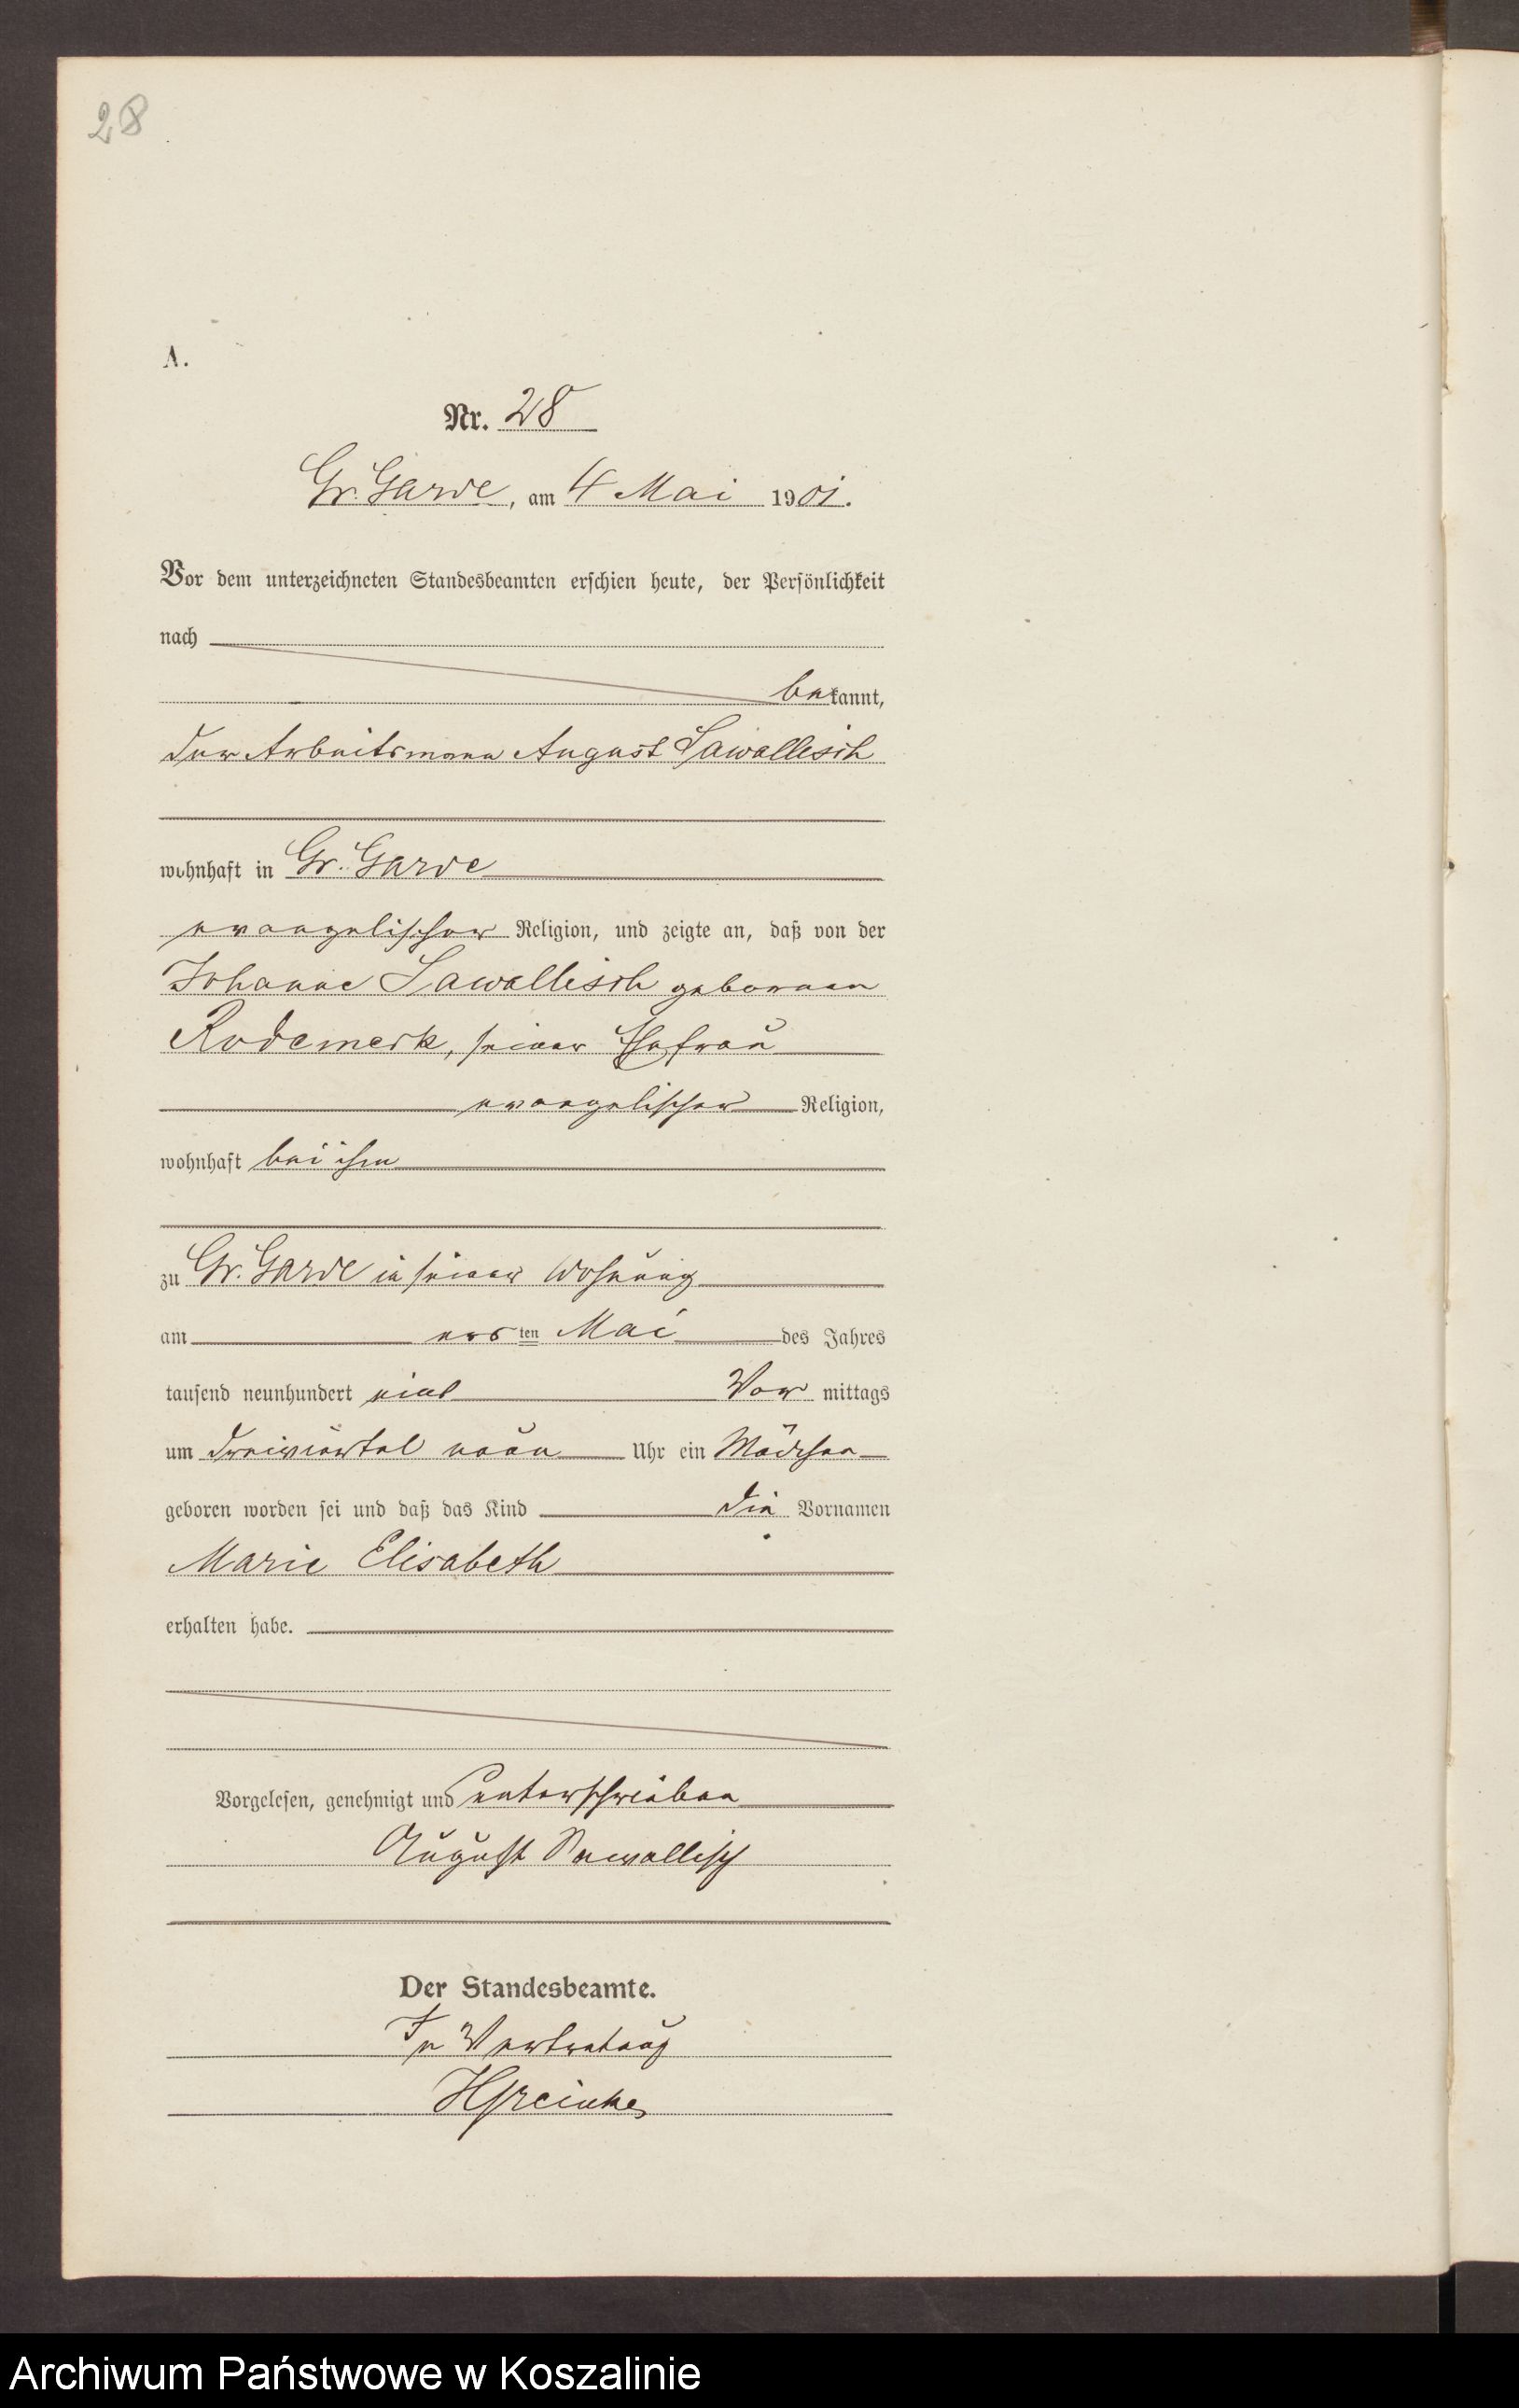 28
A.
Nr. 28
Gr. Garde, am 4 Mai 1901.
Vor dem unterzeichneten Standesbeamten erschien heute, der Persönlichkeit
nach
bekannt,
der Arbeitsmann August Sawallisch
wohnhaft in Gr. Garde
evangelischer Religion, und zeigte an, daß von der
Johanne Sawallisch geborenen
Rodemerk, seiner Ehefrau
evangelischer Religion,
wohnhaft bei ihm
zu Gr. Garde in seiner Wohnung
am ersten Mai des Jahres
tausend neunhundert eins Vor mittags
um dreiviertel neun Uhr ein Mädchen
geboren worden sei und daß das Kind die Vornamen
Marie Elisabeth
erhalten habe.
Vorgelesen, genehmigt und unterschrieben
August Sawallisch
Der Standesbeamte.
In Vertretung
Archiwum Państwowe w Koszalinie